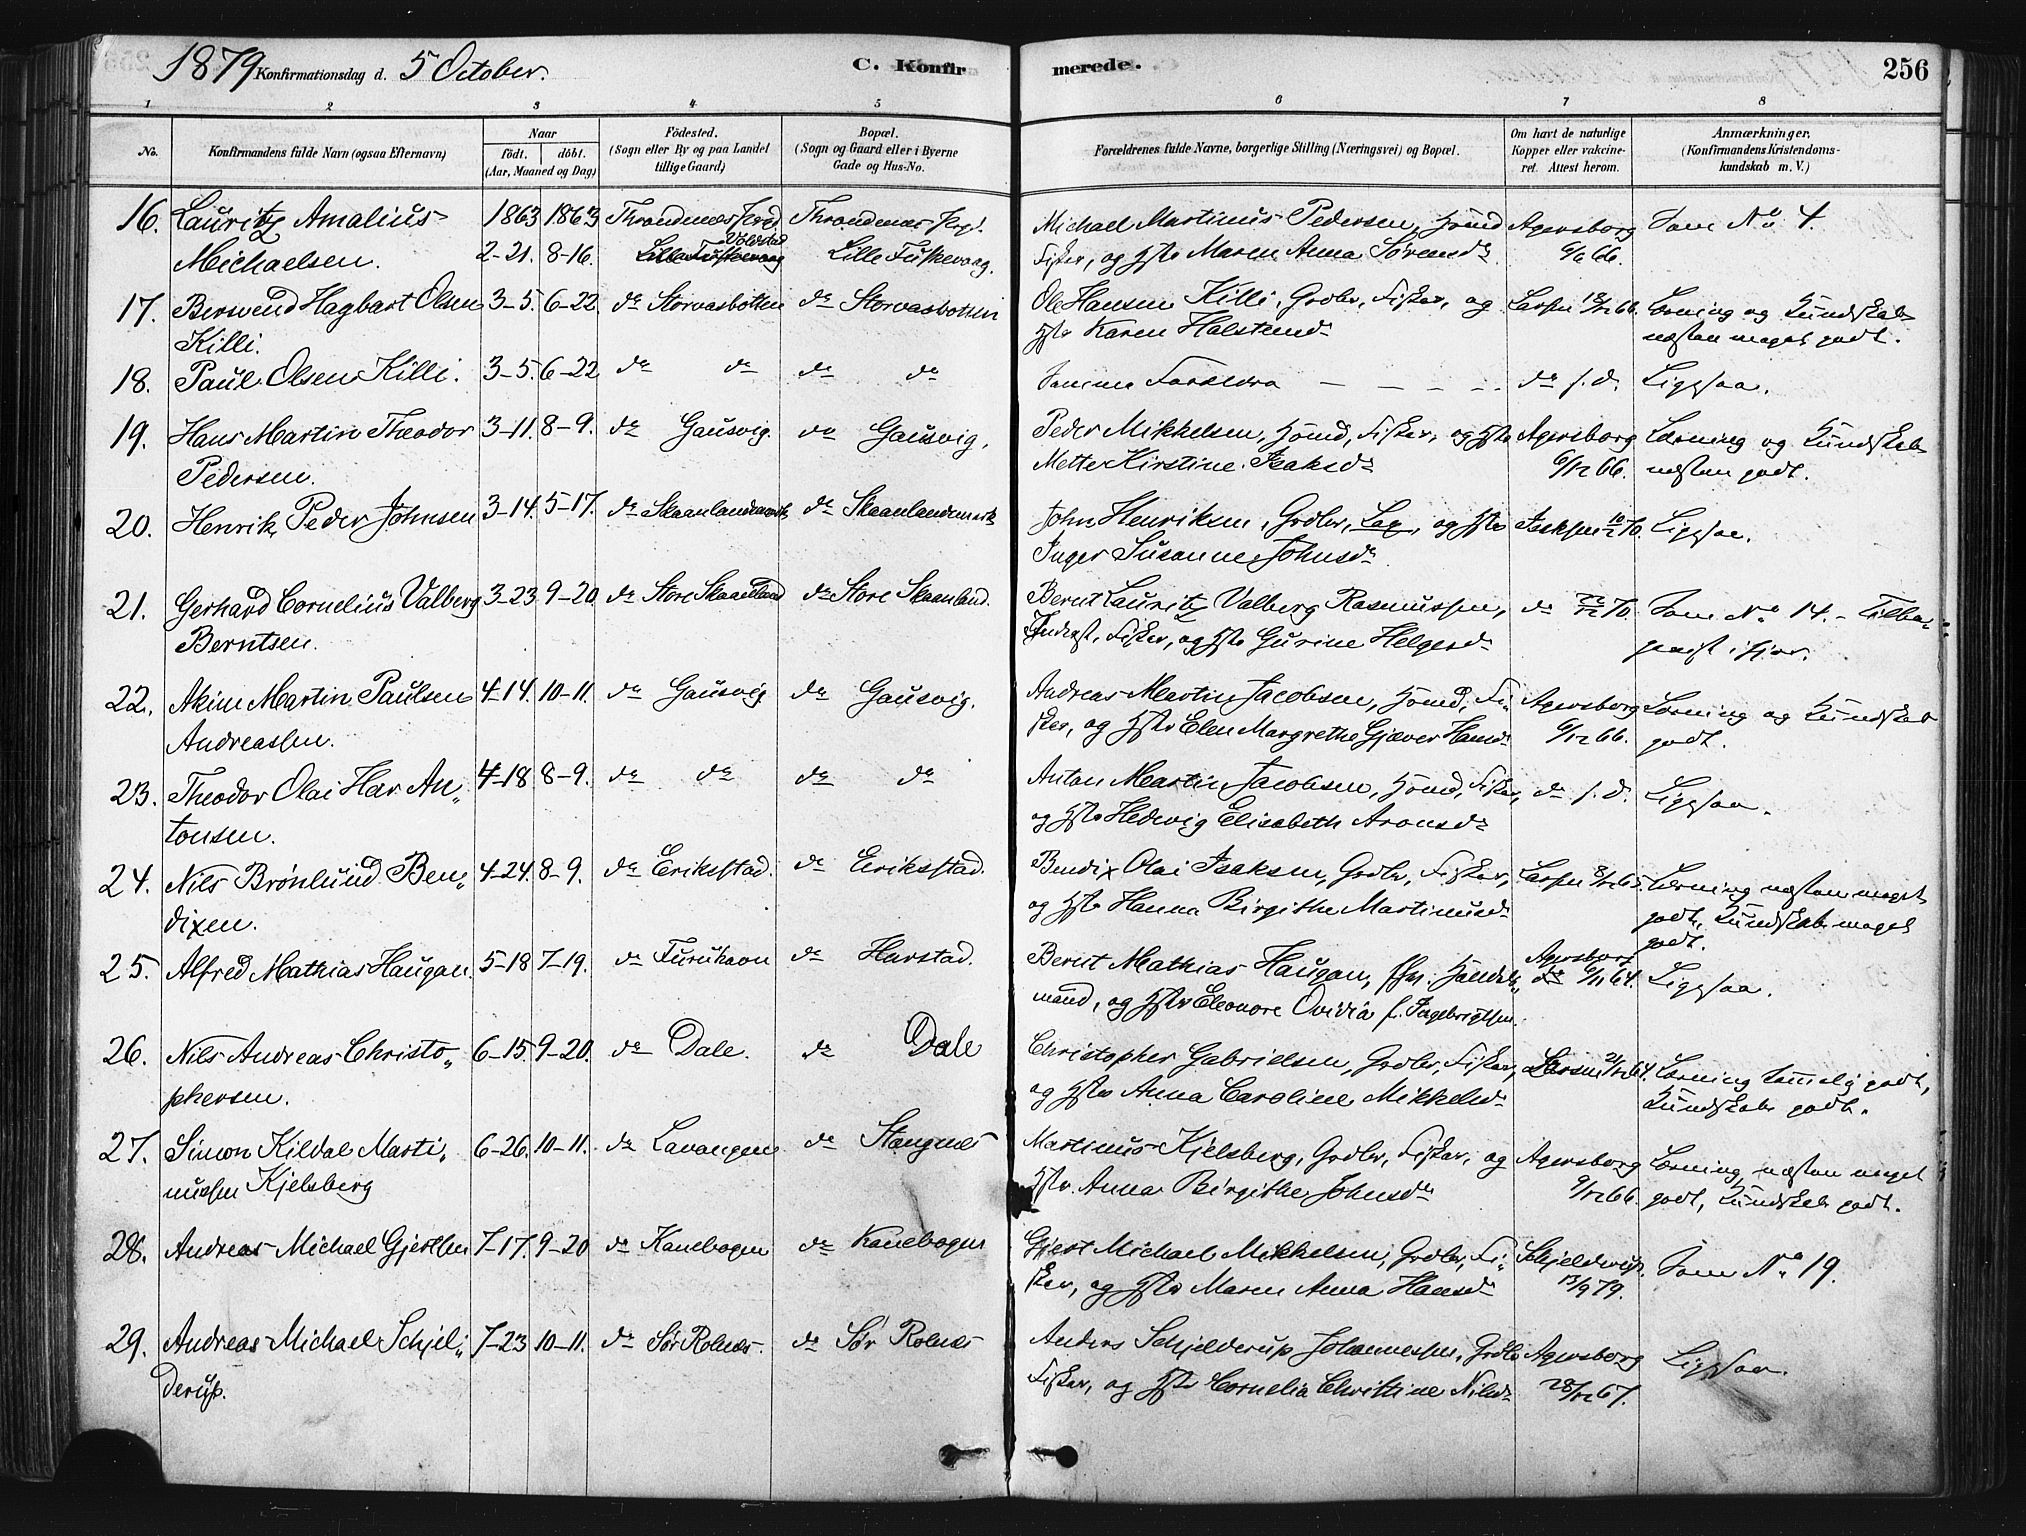 1879 Konfirmationsdag d. 5 October.
C. Konfirmerede.
256
1 2 3 4 5 6 7 8
No.
Konfirmandens fulde Navn (ogsaa Efternavn)
Naar
födt. döbt.
(Aar, Maaned og Dag)
Födested.
(Sogn eller By og paa Landet
tillige Gaard)
Bopæl.
(Sogn og Gaard eller i Byerne
Gade og Hus-No.
Forældrenes fulde Navne, borgerlige Stilling (Næringsvei) og Bopæl.
Om havt de naturlige
Kopper eller vakcine-
ret. Attest herom.
Anmærkninger,
(Konfirmandens Kristendoms-
kundskab m. V.)
16. Lauritz Amalius 1863 1863 Throndenæs Throndenæs Michael Martinus Pedersen, Agersborg Som No 4.
Michaelsen. 2-21. 8-16. Lille Fuskevaag Voldstad Lille Fuskevaag. Fisker, og Hst. Maren Anna Sørensd. 6/6 66.
17. Berwend Hagbart Olsen 3-5. 6-22. do Storvasbotten do Storvasbotten Ole Hansen Killi, Grdbr, Fisker, og Larsen Læsning og Kundskab
Killi. Hst. Karen Halstensd. næsten meget godt.
18. Paul Olsen Killi. 3-5. 6-22 do do do do Samme Forældre — — — — do s. d. Ligesaa.
19. Hans Martin Theodor 3-11. 8-9. do Gausvig. do Gausvig. Peder Mikkelsen, Huusmd, Fisker, og Hst. Agersborg Læsning og Kundskab
Pedersen. Mette Kirstine Isaksd. 6/12 66. næsten godt.
20. Henrik Peder Johnsen 3-14. 5-17. do Skaanlandsmark do Skaanlandsmark John Henriksen, Grdbr, Lap, og Hst. Isaksen Ligesaa.
Inger Susanne Johnsd.
21. Gerhard Cornelius Valberg 3-23. 9-20 do Store Skaanland do Store Skaanland. Bernt Lauritz Valberg Rasmussen, do Som No 14. - Tilba-
Berntsen. Inderst, Fisker, og Hst. Gurine Helgesd.
22. Akim Martin Paulsen 4-14. 10-11. do Gausvig do Gausvig. Andreas Martin Jacobsen, Huusmd, Fi- Agersborg Læsning og Kundskab
Andreassen. sker, og Hst. Elen Margrethe Gjæver Hansd. 6/12 66. godt.
23. Theodor Olai Har An- 4-18 8-9. do do do do Anton Martin Jacobsen, Huusmd, Fisker, do s. d. Ligesaa.
tonsen. og Hst. Hedwig Elisabeth Aronsd.
24. Nils Brønlund Ben- 4-24. 8-9. do Eriksstad. do Eriksstad. Bendix Olai Isaksen, Grdbr, Fisker, Larsen Læsning næsten meget
dixen. og Hst. Hanna Birgithe Martinusd. godt, Kundskab meget
godt.
25. Alfred Mathias Haugan. 5-18 7-19. do Furuhavn do Harstad. Bernt Mathias Haugan, Handels- Agersborg Ligesaa.
mand, og Hst. Eleonore Ovidia f. Ingebrigtsen.
26. Nils Andreas Christo- 6-15. 9-20. do Dale. do Dale Christopher Gabrielsen, Grdbr, Fisker, Larsen Læsning temmelig godt,
phersen. og Hst. Anna Caroline Mikkelsd. Kundskab godt.
27. Simon Kildal Marti- 6-26. 10-11. do Lavangen do Stangnæs Martinus Kjelsberg, Grdbr, Fisker, og Agersborg Læsning næsten meget
nussen Kjelsberg Hst. Anna Birgithe Johnsd. godt, Kundskab godt.
28. Andreas Michael Gjertsen 7-17. 9-20 do Kanebogen do Kanebogen Gjert Michael Mikkelsen, Grdbr, Fi- Schjelderup Som No 19.
sker, og Hst. Maren Anna Hansd. 13/9 79.
29. Andreas Michael Schjel- 7-23 10-11. do Sør Rolnæs. do Sør Rolnæs Anders Schjelderup Johannessen, Grdbr Agersborg Ligesaa.
derup. Fisker, og Hst. Cornelia Christine Nilsd. 28/12 67.